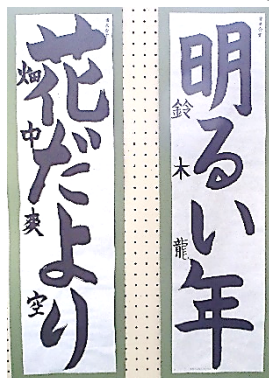 明るい年
鈴木龍
花だより
畑中爽空